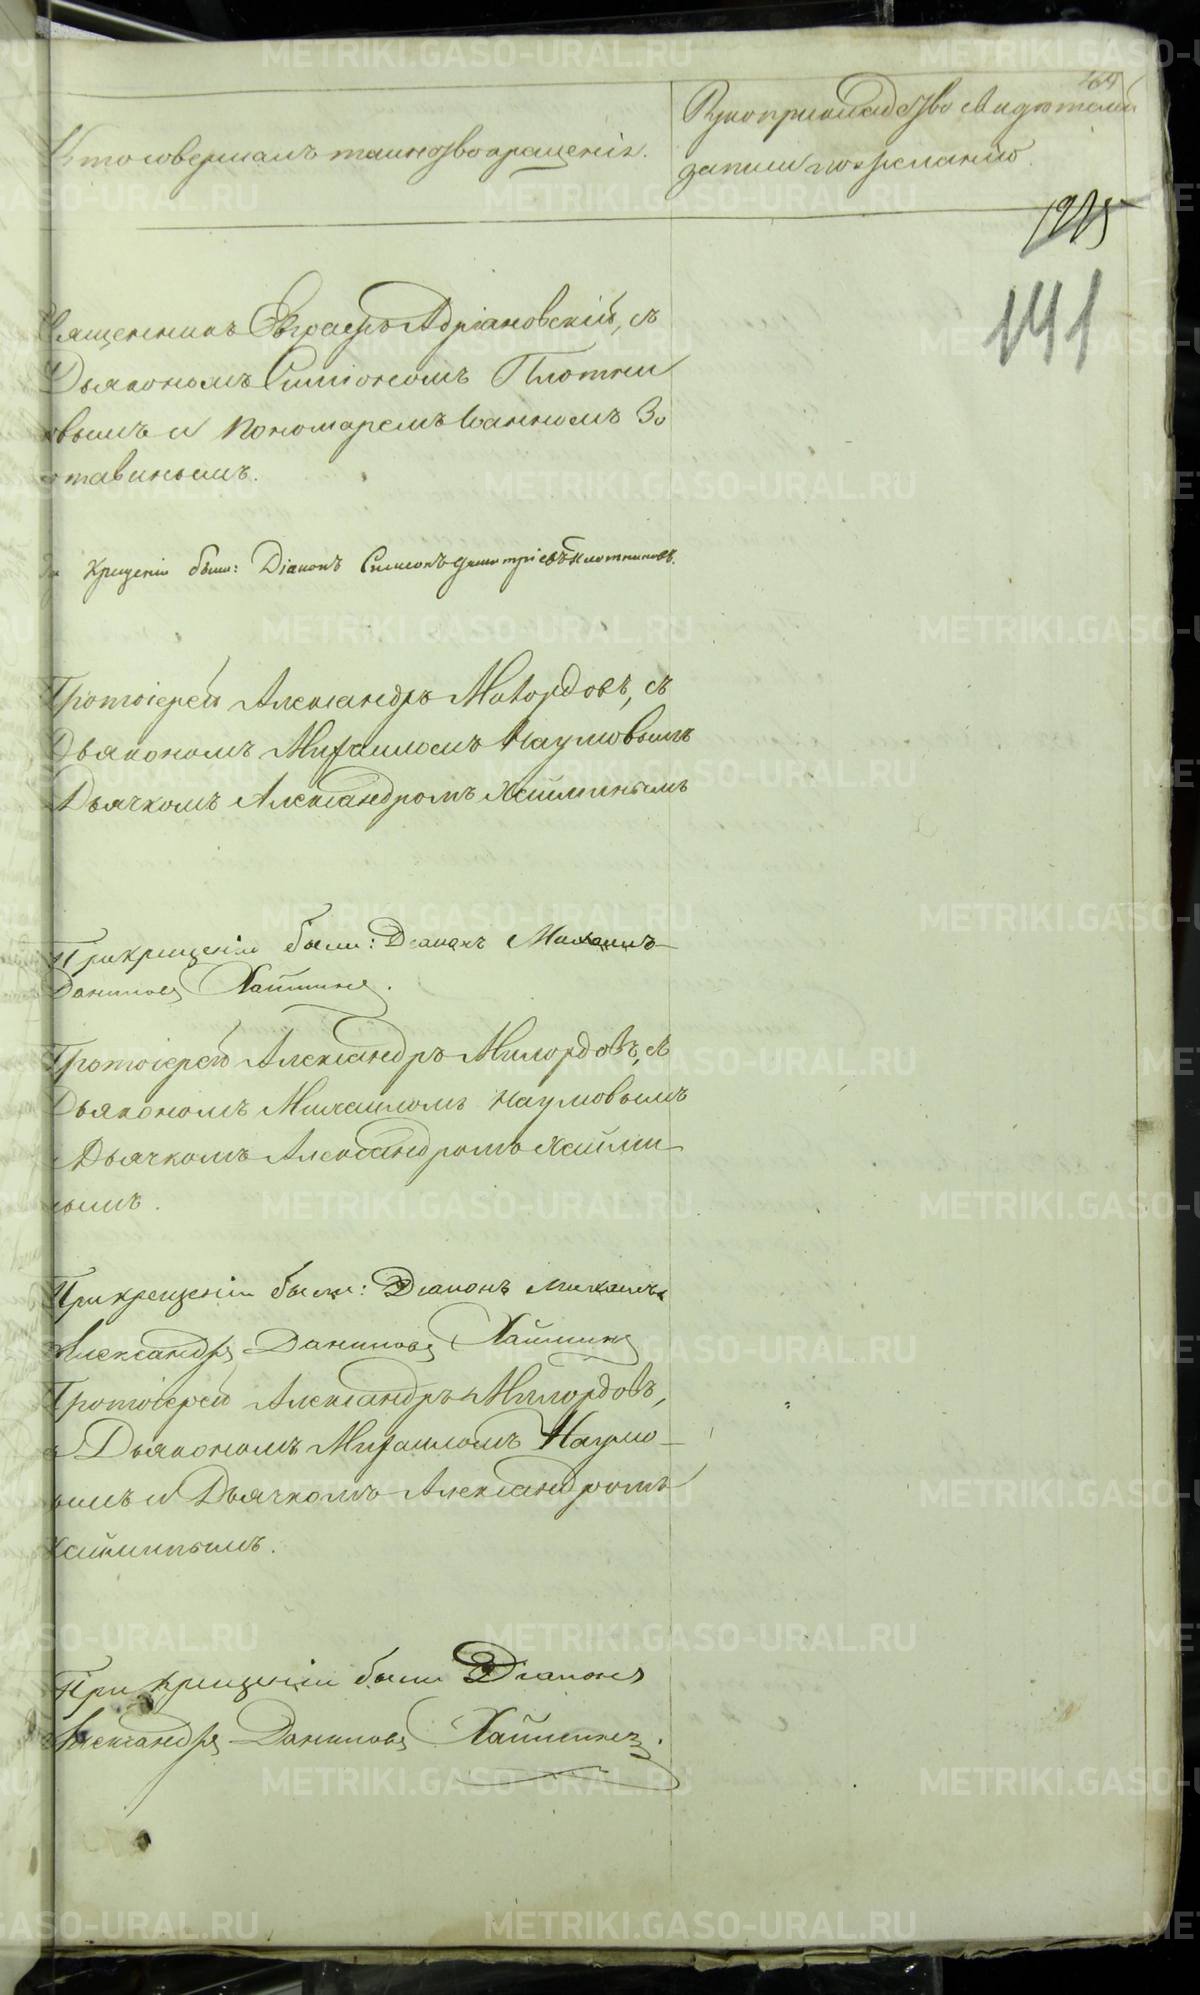 164
Кто совершалъ таинство крещенія.
Рукоприкладство свидѣтелей
записи по желанію.
1915
141
Священникъ Евграфъ Адріановскій, съ
Дьякономъ Симеономъ Плотни
овымъ и Пономаремъ Іоанномъ Зо
тавинымъ.
Крещеніи были: Діаконъ Симеонъ Димитріевъ Плотниковъ.
Протоіерей Александръ Милордовъ, съ
Дьякономъ Михаиломъ Наумовымъ
Дьячкомъ Александромъ Хаилинымъ
При крещеніи были: Діаконъ Михаилъ
Даниловъ Хайлинъ.
Протоіерей Александръ Милордовъ, съ
Дьякономъ Михаиломъ Наумовымъ
Дьячкомъ Александромъ Хайли
нымъ.
При крещеніи были: Діаконъ Михаилъ
Александръ Даниловъ Хайлинъ
Протоіерей Александръ Милордовъ,
съ Дьякономъ Михаиломъ Наумо-
вымъ и Дьячкомъ Александромъ
Хайлинымъ.
При крещеніи были Діаконъ
Александръ Даниловъ Хайлинъ.
METRIKI.GASO-URAL.RU